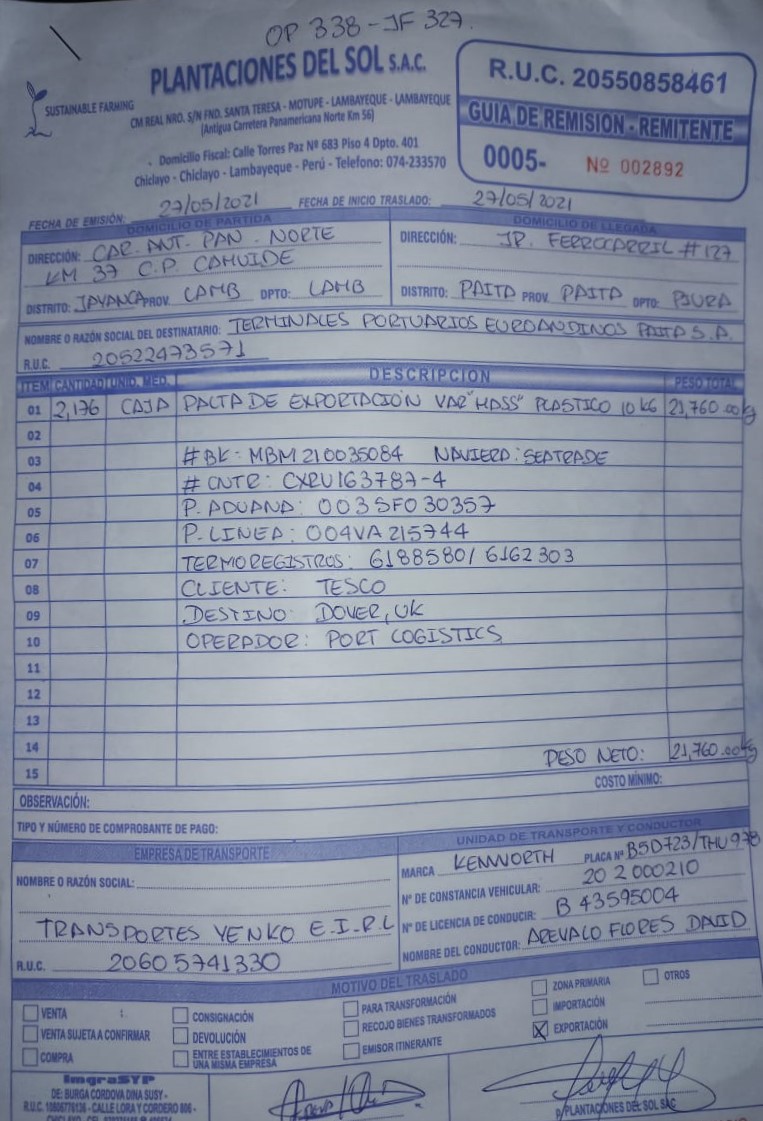 OP 338 - JF 327.
PLANTACIONES DEL SOL S.A.C.
SUSTAINABLE FARMING
CM REAL NRO. S/N FND. SANTA TERESA - MOTUPE - LAMBAYEQUE - LAMBAYEQUE
(Antigua Carretera Panamericana Norte Km 56)
Domicilio Fiscal: Calle Torres Paz Nº 683 Piso 4 Dpto. 401
Chiclayo - Chiclayo - Lambayeque - Perú - Telefono: 074-233570
R.U.C. 20550858461
GUIA DE REMISION - REMITENTE
0005- Nº 002892
FECHA DE EMISIÓN: 27/05/2021 FECHA DE INICIO TRASLADO: 27/05/2021
DOMICILIO DE PARTIDA
DIRECCIÓN: CAR. ANT. PAN. NORTE
KM 37 C.P. CAHUIDE
DISTRITO: JAYANCA PROV LAMB DPTO: LAMB
DOMICILIO DE LLEGADA
DIRECCIÓN: JR. FERROCARRIL #127
DISTRITO: PAITA PROV PAITA DPTO: PIURA
NOMBRE O RAZÓN SOCIAL DEL DESTINATARIO: TERMINALES PORTUARIOS EUROANDINOS PAITA S.A.
R.U.C. 20522473571
ITEM CANTIDAD UNID. MED. DESCRIPCION PESO TOTAL
01 2,176 CAJA PALTA DE EXPORTACIÓN VAR "HASS" PLASTICO 10 KG 21,760.00 kg
02
03 #BK: MBM210035084 NAVIERA: SEATRADE
04 # CNTR: CXRU163787-4
05 P. ADUANA: 003SF030357
06 P. LINEA: 004VA215744
07 TERMOREGISTROS: 6188580/6162303
08 CLIENTE: TESCO
09 DESTINO: DOVER, UK
10 OPERADOR: PORT LOGISTICS
11
12
13
14 PESO NETO: 21,760.00 kg
15 COSTO MÍNIMO:
OBSERVACIÓN:
TIPO Y NÚMERO DE COMPROBANTE DE PAGO:
EMPRESA DE TRANSPORTE
NOMBRE O RAZÓN SOCIAL:
TRANSPORTES YENKO E.I.R.L
R.U.C. 20605741330
UNIDAD DE TRANSPORTE Y CONDUCTOR
MARCA KENWORTH PLACA Nº B5D723/THU978
Nº DE CONSTANCIA VEHICULAR: 20 2 000210
Nº DE LICENCIA DE CONDUCIR: B 43595004
NOMBRE DEL CONDUCTOR: AREVALO FLORES DAVID
MOTIVO DEL TRASLADO
VENTA
VENTA SUJETA A CONFIRMAR
COMPRA
CONSIGNACIÓN
DEVOLUCIÓN
ENTRE ESTABLECIMIENTOS DE
UNA MISMA EMPRESA
PARA TRANSFORMACIÓN
RECOJO BIENES TRANSFORMADOS
EMISOR ITINERANTE
ZONA PRIMARIA
IMPORTACIÓN
X EXPORTACIÓN
OTROS
ImgraSYP
DE: BURGA CORDOVA DINA SUSY -
CALLE LORA Y CORDERO 806 -
P/PLANTACIONES DEL SOL SAC